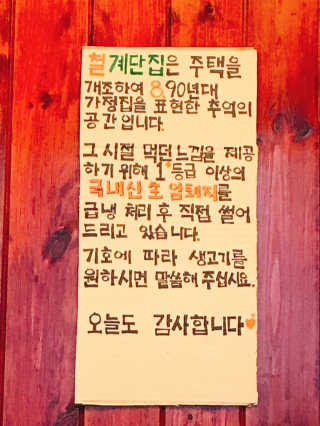 철계단집은 주택을
개조하여 8.90년대
가정집을 표현한 추억의
공간입니다.
그 시절 먹던 느낌을 제공
하기 위해 1⁺등급 이상의
국내산 호 암퇘지를
급냉 처리 후 직접 썰어
드리고 있습니다.
기호에 따라 생고기를
원하시면 말씀해 주십시요.
오늘도 감사합니다